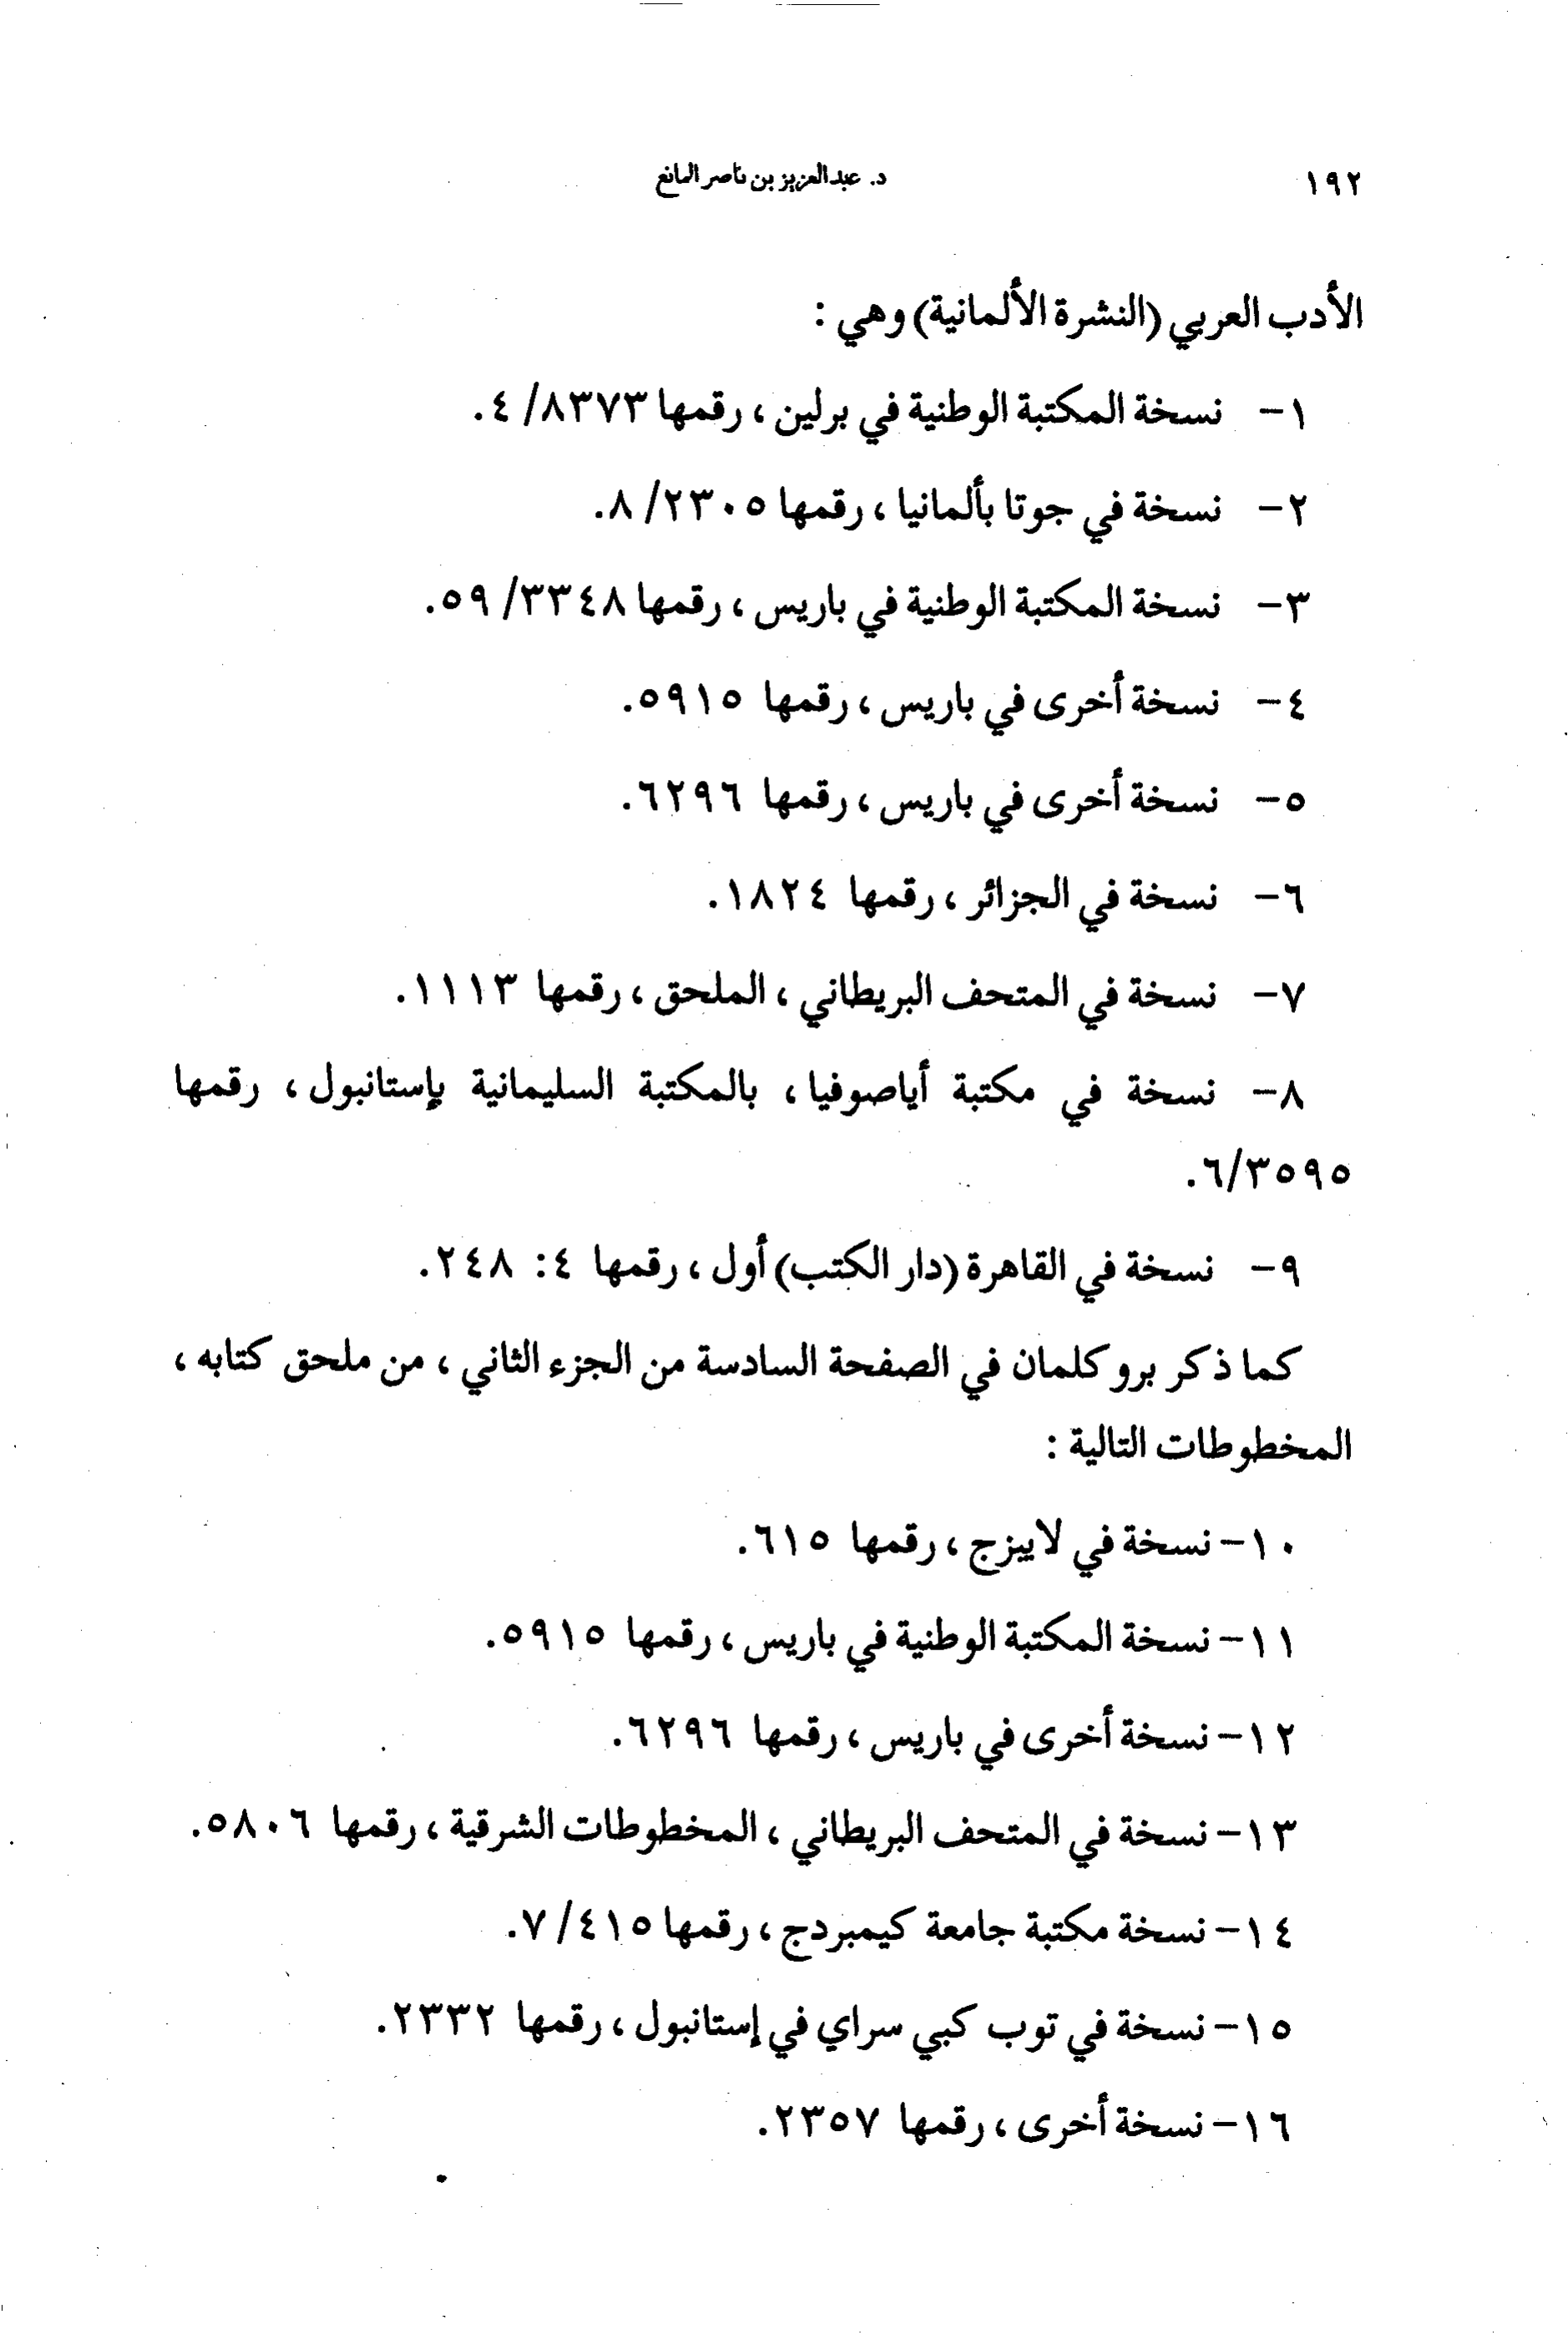 ١٩٢
د. عبدالعزيز بن ناصر المانع
الأدب العربي (النشرة الألمانية) وهي :
١- نسخة المكتبة الوطنية في برلين ، رقمها ٨٣٧٣/ ٤.
٢- نسخة في جوتا بألمانيا ، رقمها ٢٣٠٥/ ٨.
٣- نسخة المكتبة الوطنية في باريس ، رقمها ٣٣٤٨/ ٥٩.
٤- نسخة أخرى في باريس ، رقمها ٥٩١٥.
٥- نسخة أخرى في باريس ، رقمها ٦٢٩٦.
٦- نسخة في الجزائر ، رقمها ١٨٢٤.
٧- نسخة في المتحف البريطاني ، الملحق ، رقمها ١١١٣.
٨- نسخة في مكتبة أياصوفيا ، بالمكتبة السليمانية بإستانبول ، رقمها
٣٥٩٥/٦.
٩- نسخة في القاهرة (دار الكتب) أول ، رقمها ٤: ٢٤٨.
كما ذكر بروكلمان في الصفحة السادسة من الجزء الثاني ، من ملحق كتابه ،
المخطوطات التالية :
١٠- نسخة في لايبزج ، رقمها ٦١٥.
١١- نسخة المكتبة الوطنية في باريس ، رقمها ٥٩١٥.
١٢- نسخة أخرى في باريس ، رقمها ٦٢٩٦.
١٣- نسخة في المتحف البريطاني ، المخطوطات الشرقية ، رقمها ٥٨٠٦.
١٤- نسخة مكتبة جامعة كيمبردج ، رقمها ٤١٥/ ٧.
١٥- نسخة في توب كبي سراي في إستانبول ، رقمها ٢٣٣٢.
١٦- نسخة أخرى ، رقمها ٢٣٥٧.